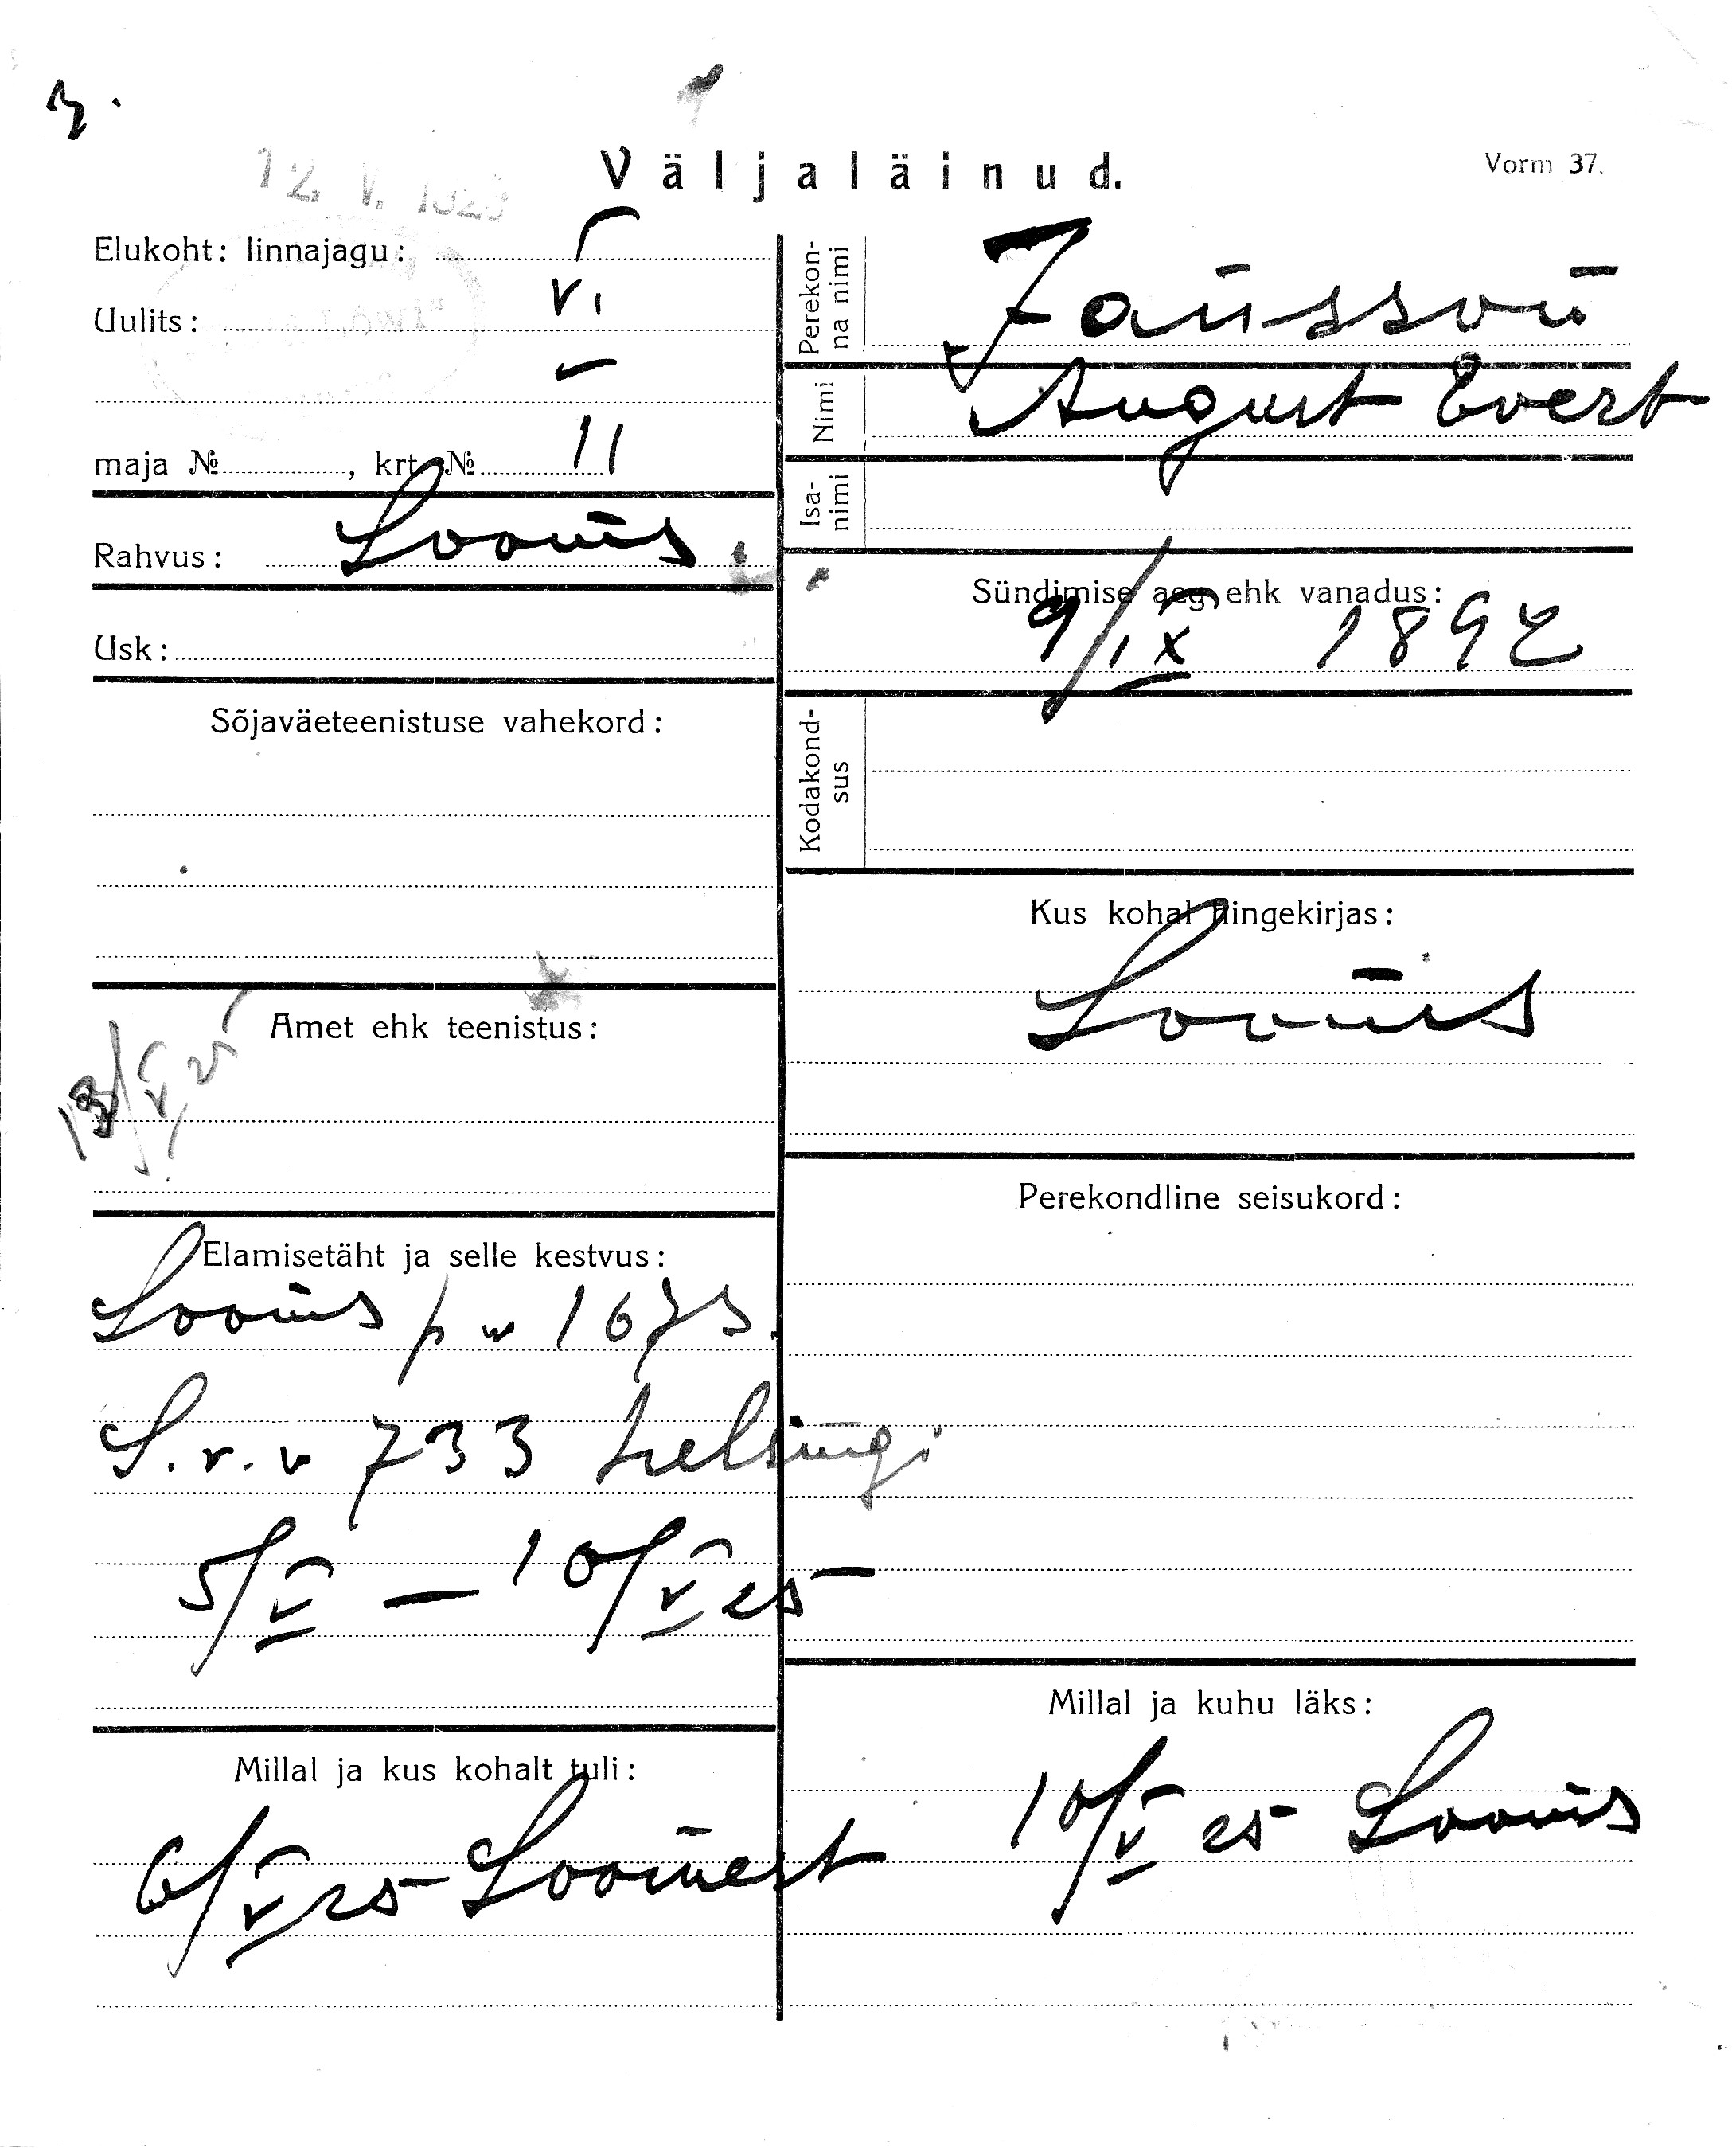 Väljaläinud.
Vorm 37.
12. V. 1925
Elukoht: linnajagu:
Uulits:
maja №, krt. № 11
Rahvus: Soomes
Usk:
Sõjaväeteenistuse vahekord:
Amet ehk teenistus:
13/V 25
Elamisetäht ja selle kestvus:
Soomes p
S.v.v 733 Helsingi
5/V — 10/V 25
Millal ja kus kohalt tuli:
6/V 25 Soomest
Perekonna nimi
Jansson
Nimi
August Evert
Isanimi
Sündimise aeg ehk vanadus:
9/IX 1892
Kodakondsus
Kus kohal hingekirjas:
Soomes
Perekondline seisukord:
Millal ja kuhu läks:
10/V 25 Soomes